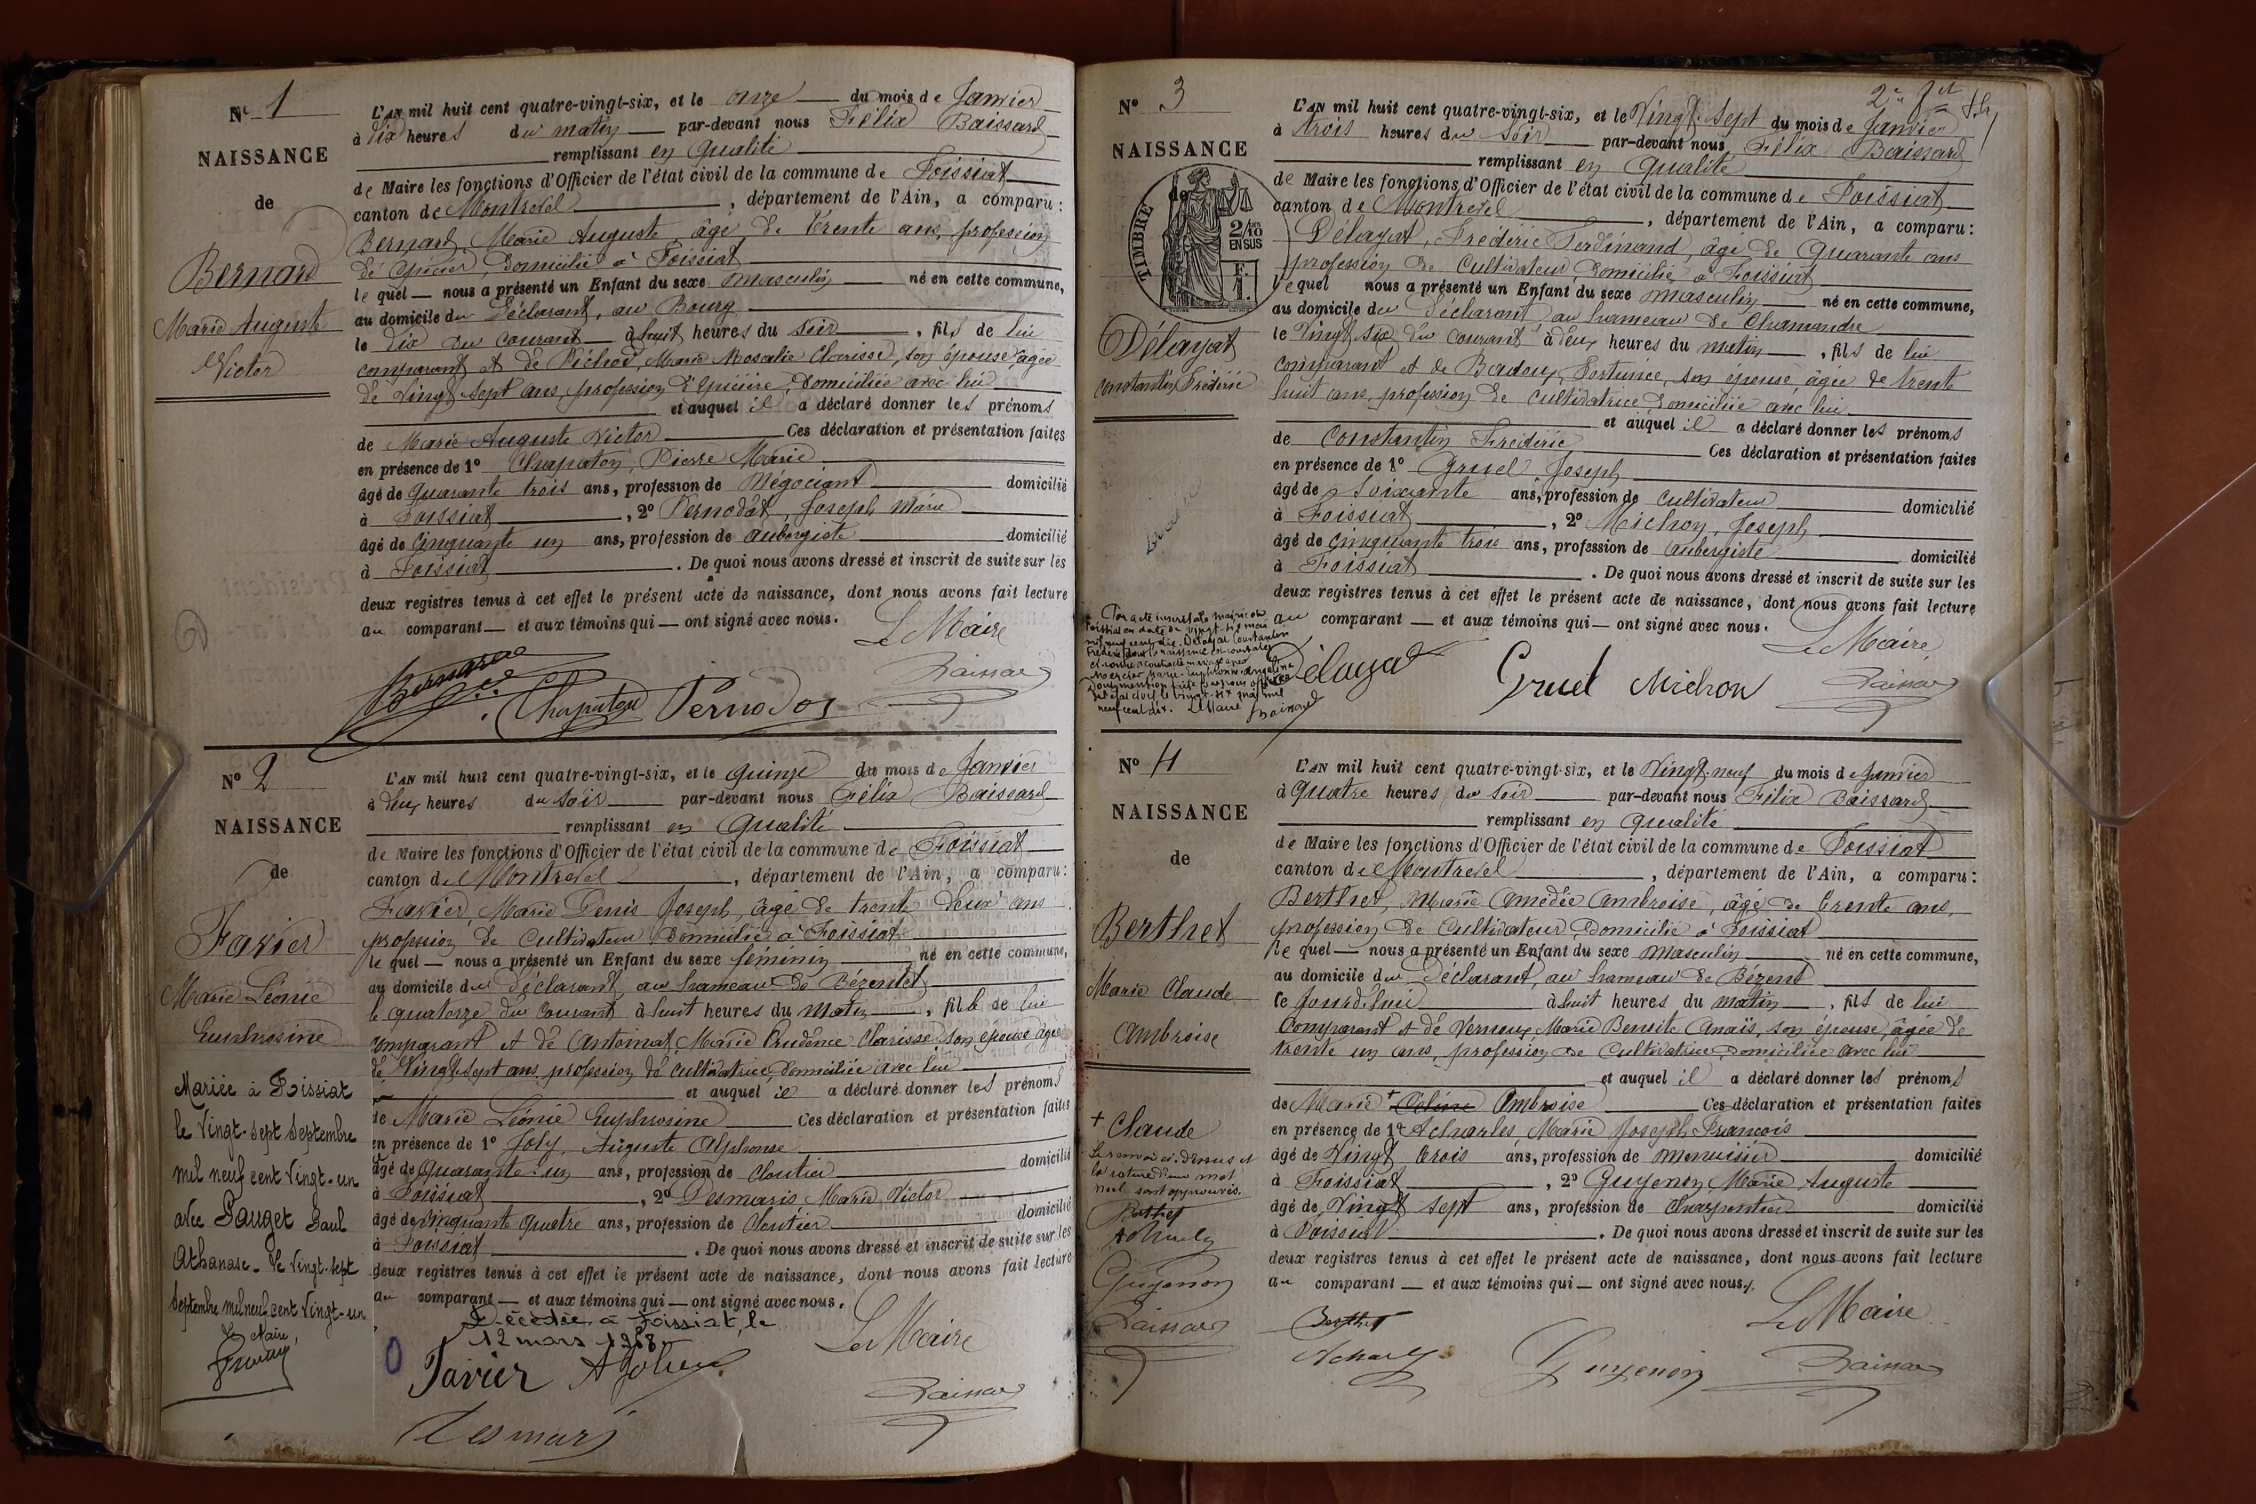 N° 1
NAISSANCE
de
Bernard
Marie Auguste
Victor
L'AN mil huit cent quatre-vingt-six, et le onze du mois de Janvier
à dix heures du matin par-devant nous Félix Baissard
remplissant en qualité
de Maire les fonctions d'Officier de l'état civil de la commune de Foissiat
canton de Montrevel, département de l'Ain, a comparu :
Bernard, Marie Auguste, âgé de trente ans, profession
de épicier, domicilié à Foissiat
le quel nous a présenté un Enfant du sexe masculin né en cette commune,
au domicile du Déclarant, au Bourg
le dix du courant à huit heures du soir, fils de lui
comparant et de Marie Rosalie Clarisse, son épouse, âgée
de Vingt-sept ans, profession d'épicière, domiciliée avec lui
et auquel il a déclaré donner les prénoms
de Marie Auguste Victor Ces déclaration et présentation faites
en présence de 1° Chapaton, Pierre Marie
âgé de quarante trois ans, profession de Négociant domicilié
à Foissiat, 2° Pernodat, Joseph Marie
âgé de cinquante un ans, profession de aubergiste domicilié
à Foissiat. De quoi nous avons dressé et inscrit de suite sur les
deux registres tenus à cet effet le présent acte de naissance, dont nous avons fait lecture
au comparant et aux témoins qui ont signé avec nous.
Le Maire
Bernard
Baissard
Chapaton Pernodat
N° 2
NAISSANCE
de
Favier
Marie Léonie
Euphrosine
Mariée à Foissiat
le Vingt-sept Septembre
mil neuf cent Vingt-un
avec Pauget Paul
Athanase. Le Vingt-sept
Septembre mil neuf cent Vingt-un
Le Maire,
L'AN mil huit cent quatre-vingt-six, et le quinze du mois de Janvier
à deux heures du soir par-devant nous Félix Baissard
remplissant en qualité
de Maire les fonctions d'Officier de l'état civil de la commune de Foissiat
canton de Montrevel, département de l'Ain, a comparu :
Favier, Marie Denis Joseph, âgé de trente deux ans
profession de Cultivateur domicilié à Foissiat
le quel nous a présenté un Enfant du sexe féminin né en cette commune,
au domicile du Déclarant, au hameau de Bézentet
le quatorze du courant à huit heures du matin, fille de lui
comparant et de Antoinat, Marie Prudence Clarisse son épouse âgée
de Vingt-sept ans profession de cultivatrice, domiciliée avec lui
et auquel il a déclaré donner les prénoms
de Marie Léonie Euphrosine Ces déclaration et présentation faites
en présence de 1° Joly, Auguste Alphonse
âgé de quarante-un ans, profession de cloutier domicilié
à Foissiat, 2° Desmaris Marie Victor
âgé de cinquante quatre ans, profession de Cloutier domicilié
à Foissiat. De quoi nous avons dressé et inscrit de suite sur les
deux registres tenus à cet effet le présent acte de naissance, dont nous avons fait lecture
au comparant et aux témoins qui ont signé avec nous.
Décédée à Foissiat, le
12 mars 1968
Le Maire
Favier A Joly
Baissard
Desmaris
2e ft
N° 3
NAISSANCE
de
TIMBRE
2/10
EN SUS
F.
1.
Délayat
Constantin Frédéric
L'AN mil huit cent quatre-vingt-six, et le Vingt-Sept du mois de Janvier
à trois heures du soir par-devant nous Félix Baissard
remplissant en qualité
de Maire les fonctions d'Officier de l'état civil de la commune de Foissiat
canton de Montrevel, département de l'Ain, a comparu :
Délayat, Frédéric Ferdinand, âgé de quarante ans
profession de cultivateur domicilié à Foissiat
le quel nous a présenté un Enfant du sexe masculin né en cette commune,
au domicile du Déclarant au hameau de Chamandre
le Vingt-six du courant à deux heures du matin, fils de lui
comparant et de Badoux, Fortunée, son épouse, âgée de trente
huit ans, profession de cultivatrice domiciliée avec lui
et auquel il a déclaré donner les prénoms
de Constantin Frédéric Ces déclaration et présentation faites
en présence de 1° Gruel Joseph
âgé de soixante ans, profession de cultivateur domicilié
à Foissiat, 2° Michon, Joseph
âgé de cinquante trois ans, profession de aubergiste domicilié
à Foissiat. De quoi nous avons dressé et inscrit de suite sur les
deux registres tenus à cet effet le présent acte de naissance, dont nous avons fait lecture
au comparant et aux témoins qui ont signé avec nous.
Par acte inscrit à la mairie de
Foissiat en date du vingt-six mai
mil neuf cent dix Délayat Constantin
Frédéric dont la naissance est constatée
ci-contre a contracté mariage avec
Marie Euphrosine Angeline
Dont mention faite par nous officier
de l'état civil le vingt-six mai mil
neuf cent dix. Le Maire
Le Maire
Délayat Gruel Michon Baissard
N° 4
NAISSANCE
de
Berthet
Marie Claude
Ambroise
+ Claude
Le renvoi ci-dessus et
la rature d'un mot
nul sont approuvés.
Berthet
Acharles
Guyenon
Baissard
L'AN mil huit cent quatre-vingt-six, et le Vingt-neuf du mois de Janvier
à quatre heures du soir par-devant nous Félix Baissard
remplissant en qualité
de Maire les fonctions d'Officier de l'état civil de la commune de Foissiat
canton de Montrevel, département de l'Ain, a comparu :
Berthet, Marie Amédée Ambroise, âgé de trente ans,
profession de Cultivateur domicilié à Foissiat
le quel nous a présenté un Enfant du sexe masculin né en cette commune,
au domicile du Déclarant, au hameau de Bézent
le Jourd'hui à huit heures du matin, fils de lui
Comparant et de Vernoux Marie Benoite Anaïs, son épouse, âgée de
trente un ans, profession de Cultivatrice domiciliée avec lui
et auquel il a déclaré donner les prénoms
de Marie + Céline Ambroise Ces déclaration et présentation faites
en présence de 1° Acharles Marie Joseph François
âgé de Vingt trois ans, profession de menuisier domicilié
à Foissiat, 2° Guyenon, Marie Auguste
âgé de Vingt sept ans, profession de Charpentier domicilié
à Foissiat. De quoi nous avons dressé et inscrit de suite sur les
deux registres tenus à cet effet le présent acte de naissance, dont nous avons fait lecture
au comparant et aux témoins qui ont signé avec nous.
Le Maire
Berthet
Acharles Guyenon Baissard